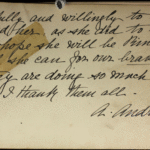 fully and willingly to
her as she did to
hope she will be
she can for our brave
ey are doing so much
I thank them all.
A. Andr